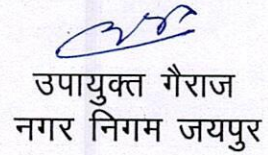 उपायुक्त गैराज
नगर निगम जयपुर